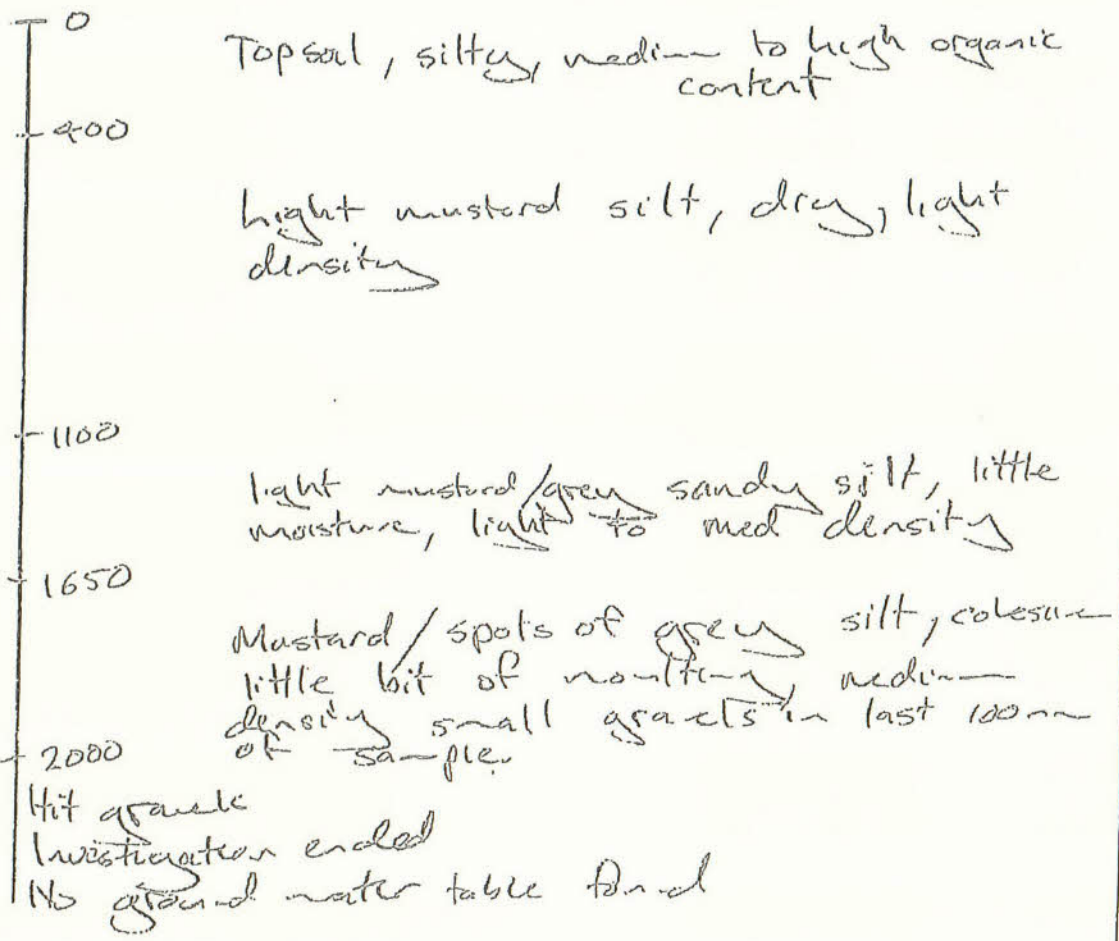 0
Topsoil, silty, medium to high organic
content
400
Light mustard silt, dry, light
density
1100
light mustard/grey sandy silt, little
moisture, light to med density
1650
Mustard/spots of grey silt, cohesive
little bit of moulting, medium
density small gravels in last 100mm
of sample.
2000
Hit gravels
Investigation ended
No ground water table found